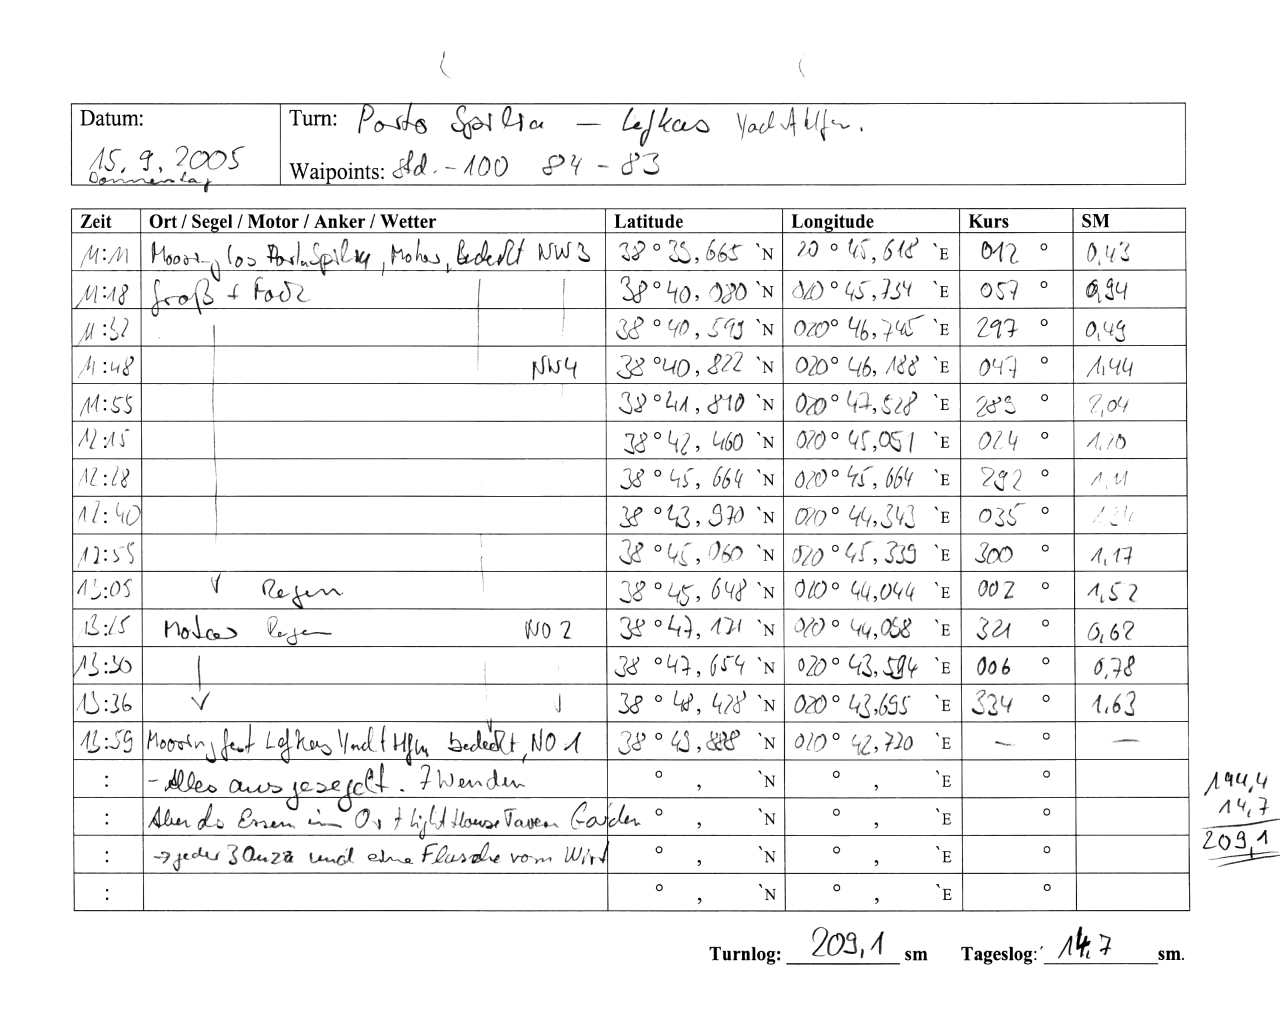 Datum: Turn: Porto Spilia – Lefkas Yacht Hfn.
15.9.2005
Donnerstag
Waipoints: std.-100 84-83
Zeit Ort / Segel / Motor / Anker / Wetter Latitude Longitude Kurs SM
11:11 Mooring los Porto Spilia, Motor, bedeckt NW3 38°39,665 `N 20°45,618 `E 012° 0,43
11:18 Groß + Fock 38°40,080 `N 020°45,734 `E 057° 0,94
11:32 38°40,599 `N 020°46,745 `E 297° 0,49
11:48 NW4 38°40,822 `N 020°46,188 `E 047° 1,44
11:55 38°41,810 `N 020°47,528 `E 289° 2,04
12:15 38°42,460 `N 020°45,051 `E 024° 1,20
12:28 38°45,664 `N 020°45,664 `E 292° 1,11
12:40 38°43,970 `N 020°44,343 `E 035°
12:55 38°45,060 `N 020°45,339 `E 300° 1,17
13:05 Regen 38°45,648 `N 020°44,044 `E 002° 1,52
13:25 Motor Regen NO2 38°47,171 `N 020°44,058 `E 321° 0,62
13:30 38°47,654 `N 020°43,594 `E 006° 0,78
13:36 38°48,428 `N 020°43,695 `E 334° 1,63
13:59 Mooring fest Lefkas Yacht Hfn bedeckt, NO1 38°49,888 `N 020°42,720 `E – –
: - Alles ausgesegelt. 7 Wenden ° , `N ° , `E °
194,4
14,7
209,1
: Essen im Ort Light House Tavern Garden ° , `N ° , `E °
: → jeder 3 Ouzo und eine Flasche vom Wirt ° , `N ° , `E °
: ° , `N ° , `E °
Turnlog: 209,1 sm Tageslog: 14,7 sm.